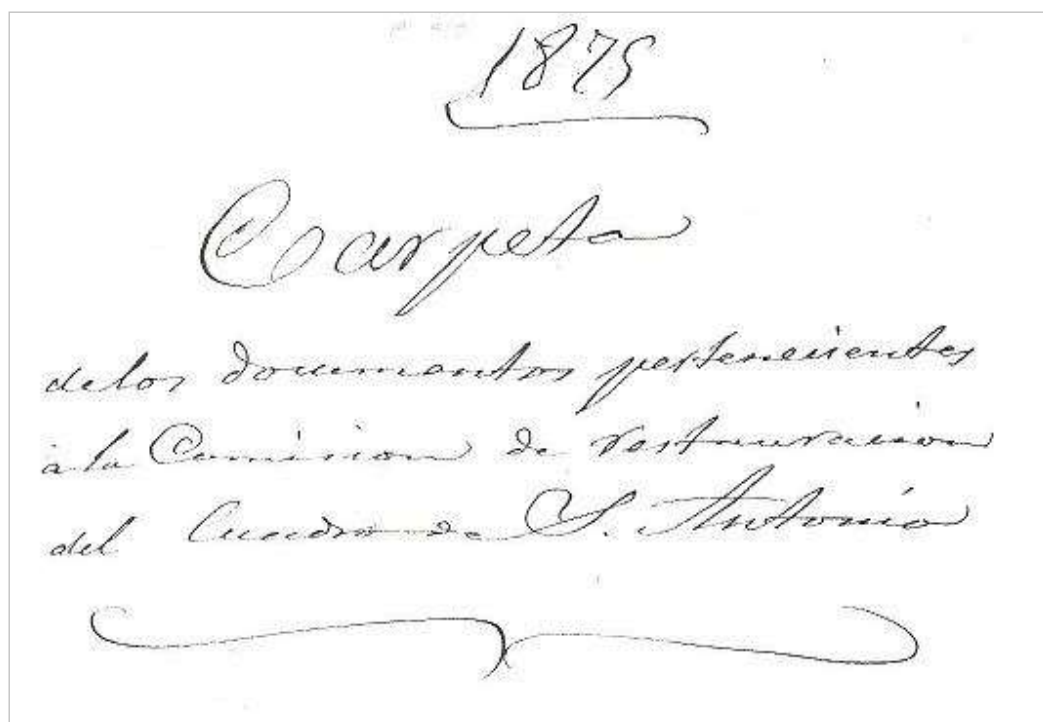 1875
Carpeta
de los documentos pertenecientes
á la Comision de restauracion
del Cuadro de S. Antonio